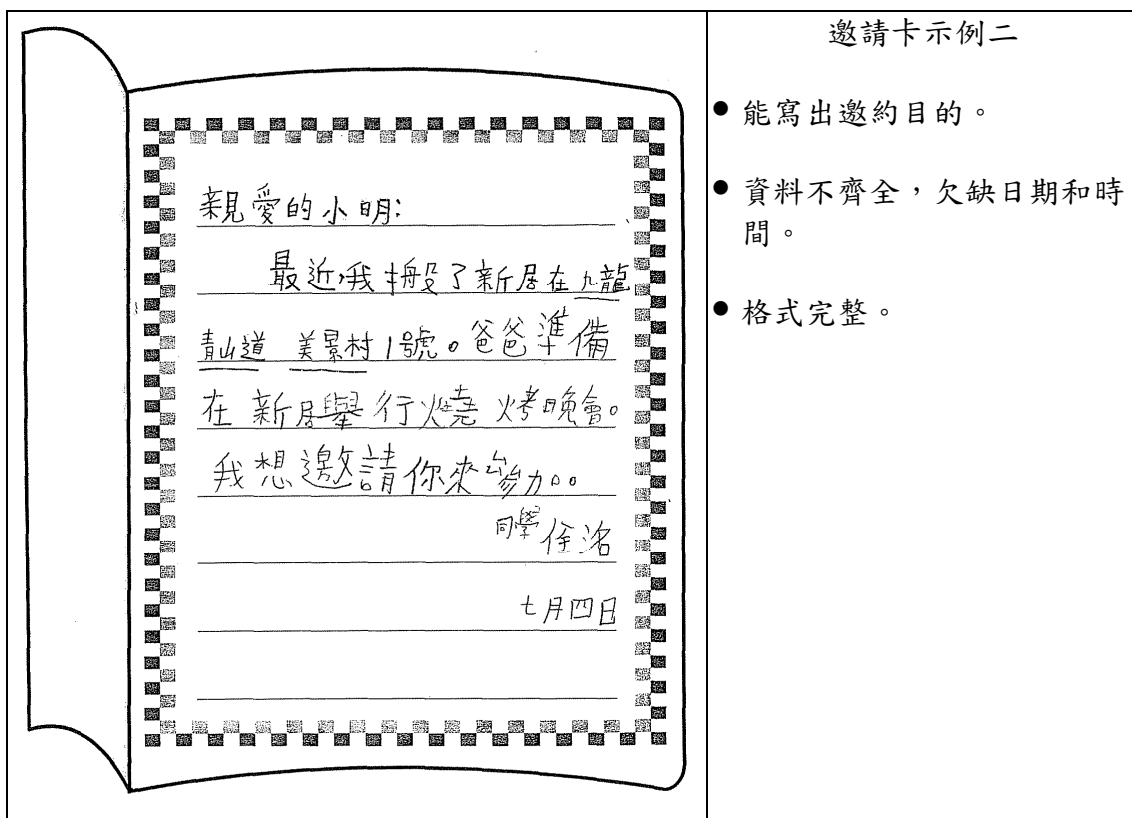 親愛的小明:
最近,我搬了新居在九龍
青山道 美景村1號。爸爸準備
在新居舉行燒烤晚會。
我想邀請你來參加。
同學佳洺
七月四日
邀請卡示例二
● 能寫出邀約目的。
● 資料不齊全,欠缺日期和時
間。
● 格式完整。